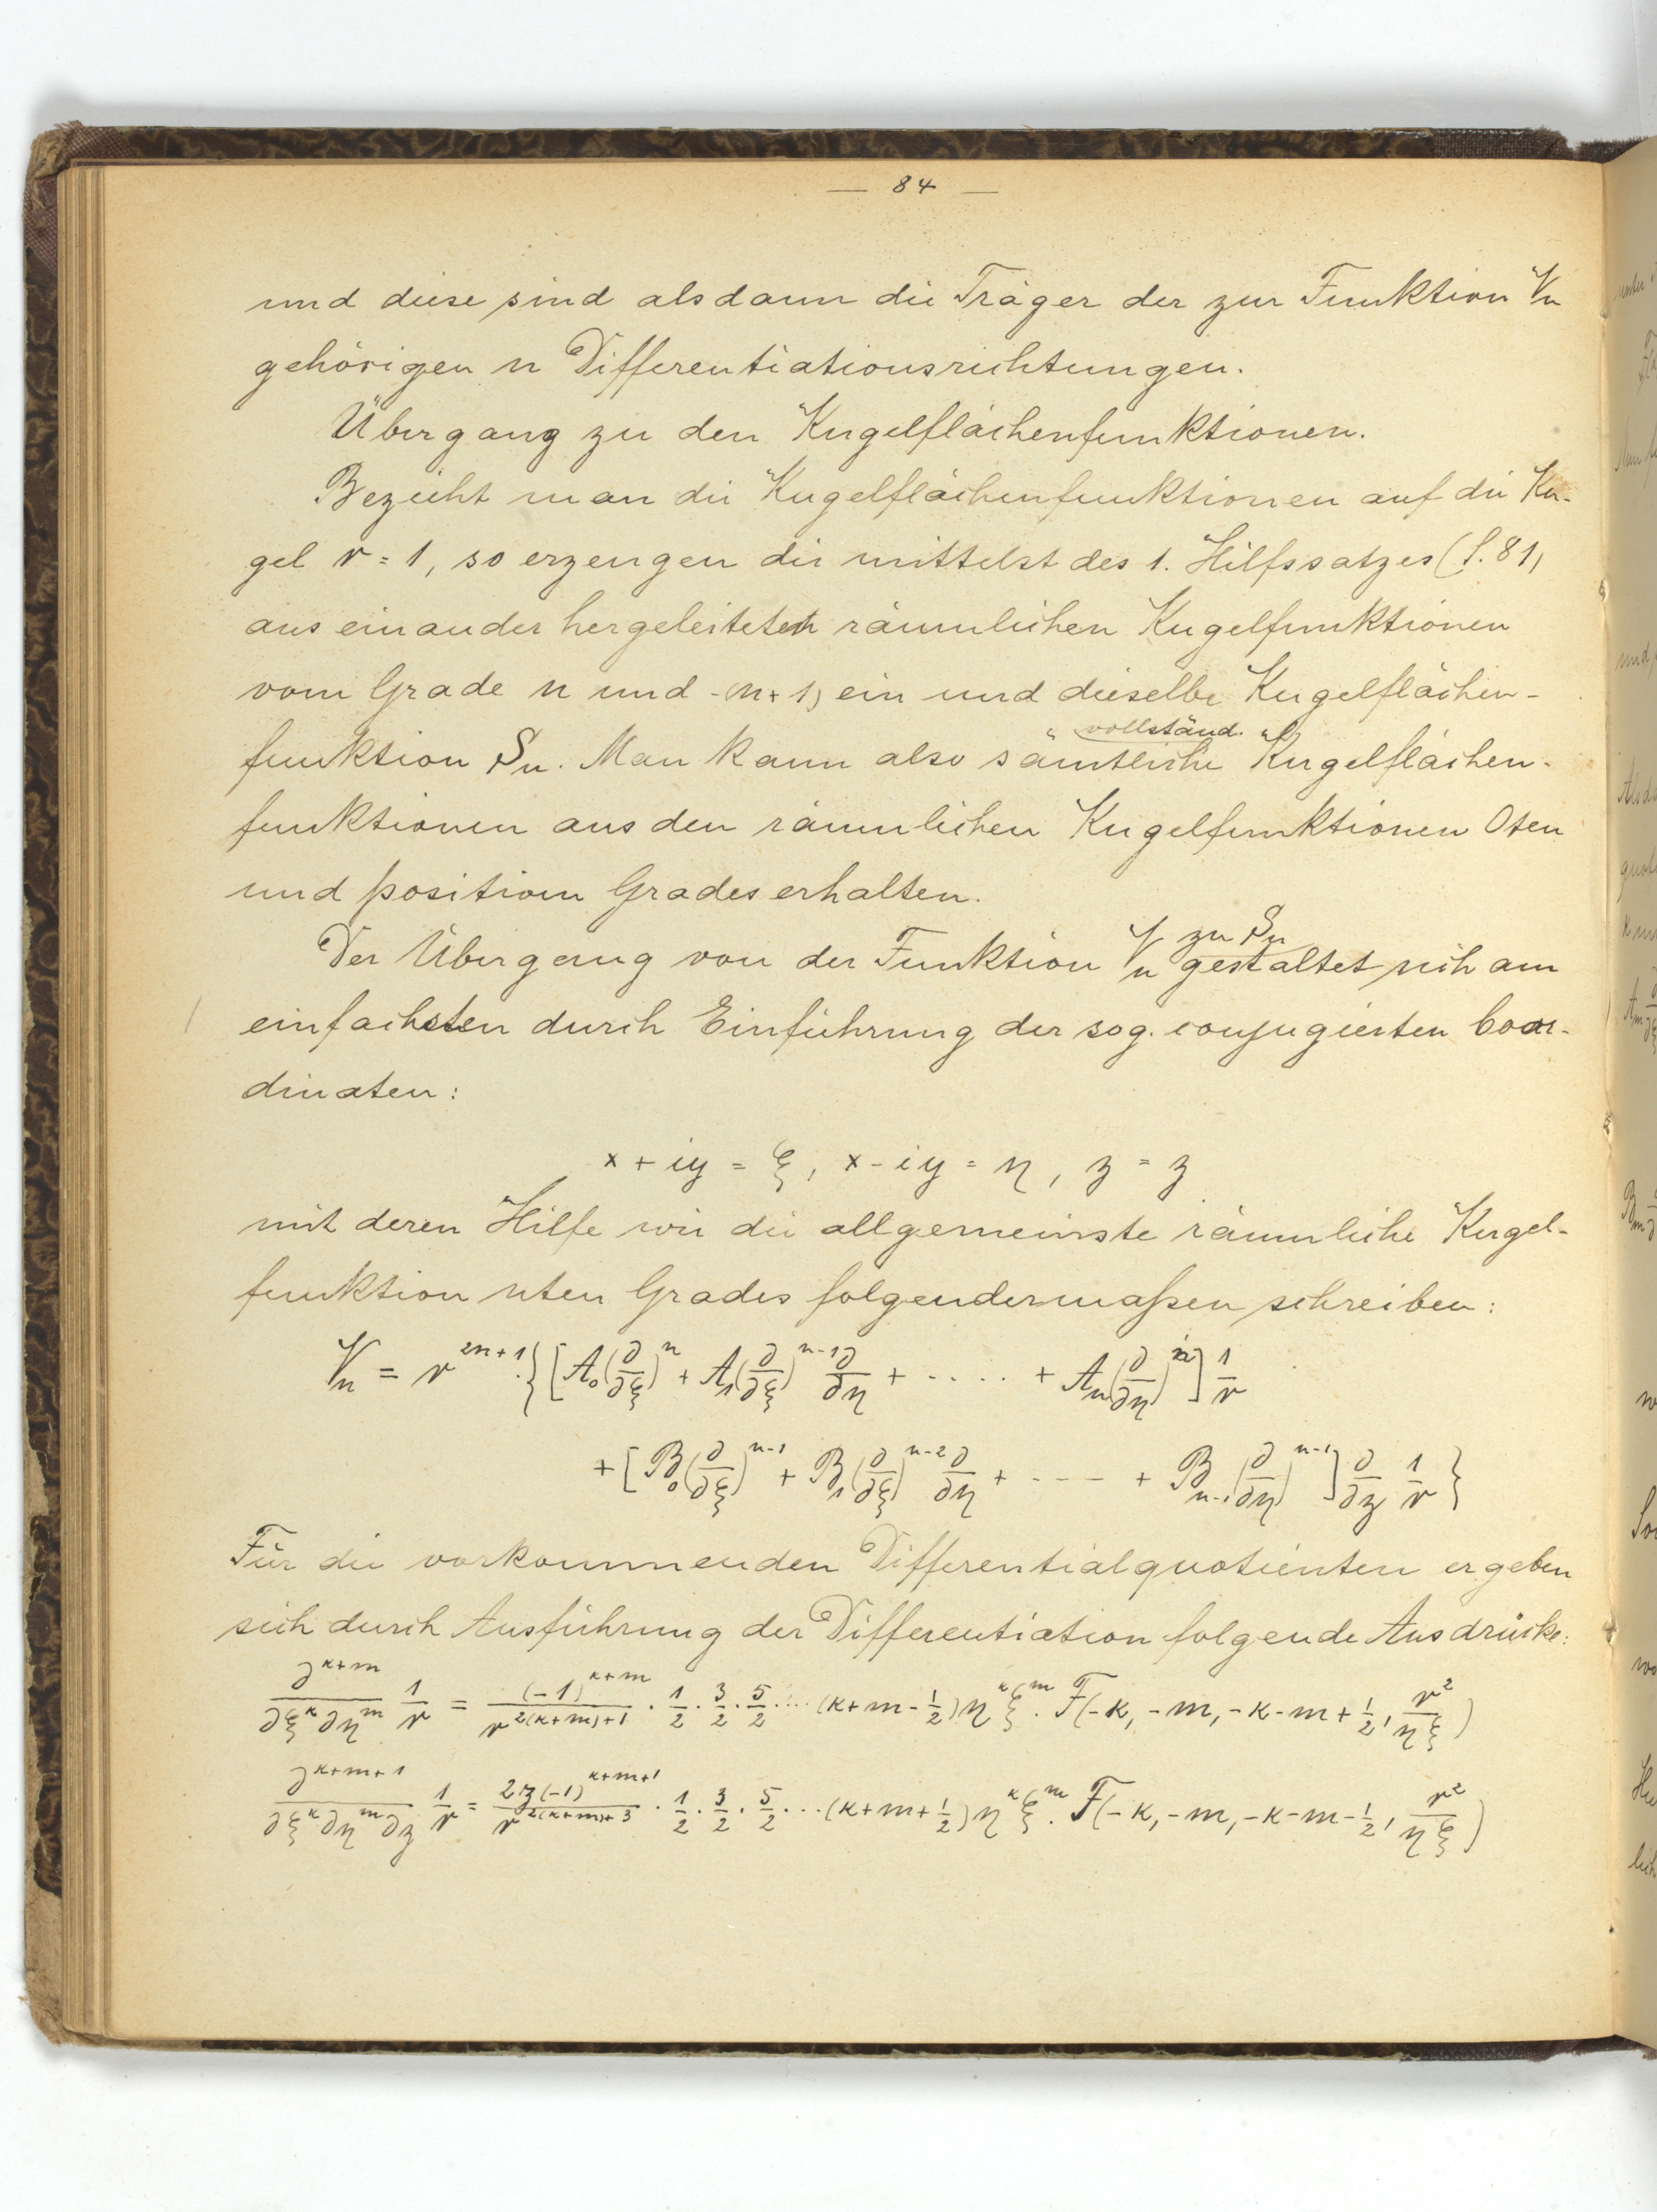 — 84 —
und diese sind alsdann die Träger der zur Funktion Vn
gehörigen n Differentiationsrichtungen.
Übergang zu den Kugelflächenfunktionen.
Bezieht man die Kugelflächenfunktionen auf die Ku-
gel r = 1, so erzeugen die mittelst des 1. Hilfssatzes (S. 81)
aus einander hergeleiteten räumlichen Kugelfunktionen
vom Grade n und -(n+1) ein und dieselbe Kugelflächen-
vollständ.
funktion Sn. Man kann also "sämtliche" Kugelflächen-
funktionen aus den räumlichen Kugelfunktionen 0ten
und positiven Grades erhalten.
zu Sn
Der Übergang von der Funktion Vn gestaltet sich am
einfachsten durch Einführung der sog. conjugierten Coor-
dinaten:
x + iy = ξ, x - iy = η, z = z
mit deren Hilfe wir die allgemeinste räumliche Kugel-
funktion nten Grades folgendermaßen schreiben:
Vn = r^{2n+1}·{[A₀(∂/∂ξ)^n + A₁(∂/∂ξ)^{n-1} ∂/∂η + ..... + An(∂/∂η)^n] 1/r
+ [B₀(∂/∂ξ)^{n-1} + B₁(∂/∂ξ)^{n-2} ∂/∂η + ---- + B_{n-1}(∂/∂η)^{n-1}] ∂/∂z 1/r}
Für die vorkommenden Differentialquotienten ergeben
sich durch Ausführung der Differentiation folgende Ausdrücke:
∂^{κ+m}/∂ξ^κ∂η^m 1/r = (-1)^{κ+m}/r^{2(κ+m)+1} · 1/2 · 3/2 · 5/2 .... (κ+m-1/2) η^κ ξ^m · F(-κ, -m, -κ-m+1/2, r²/ηξ)
∂^{κ+m+1}/∂ξ^κ∂η^m∂z 1/r = 2z(-1)^{κ+m+1}/r^{2(κ+m)+3} · 1/2 · 3/2 · 5/2 ... (κ+m+1/2) η^κ ξ^m · F(-κ, -m, -κ-m-1/2, r²/ηξ)